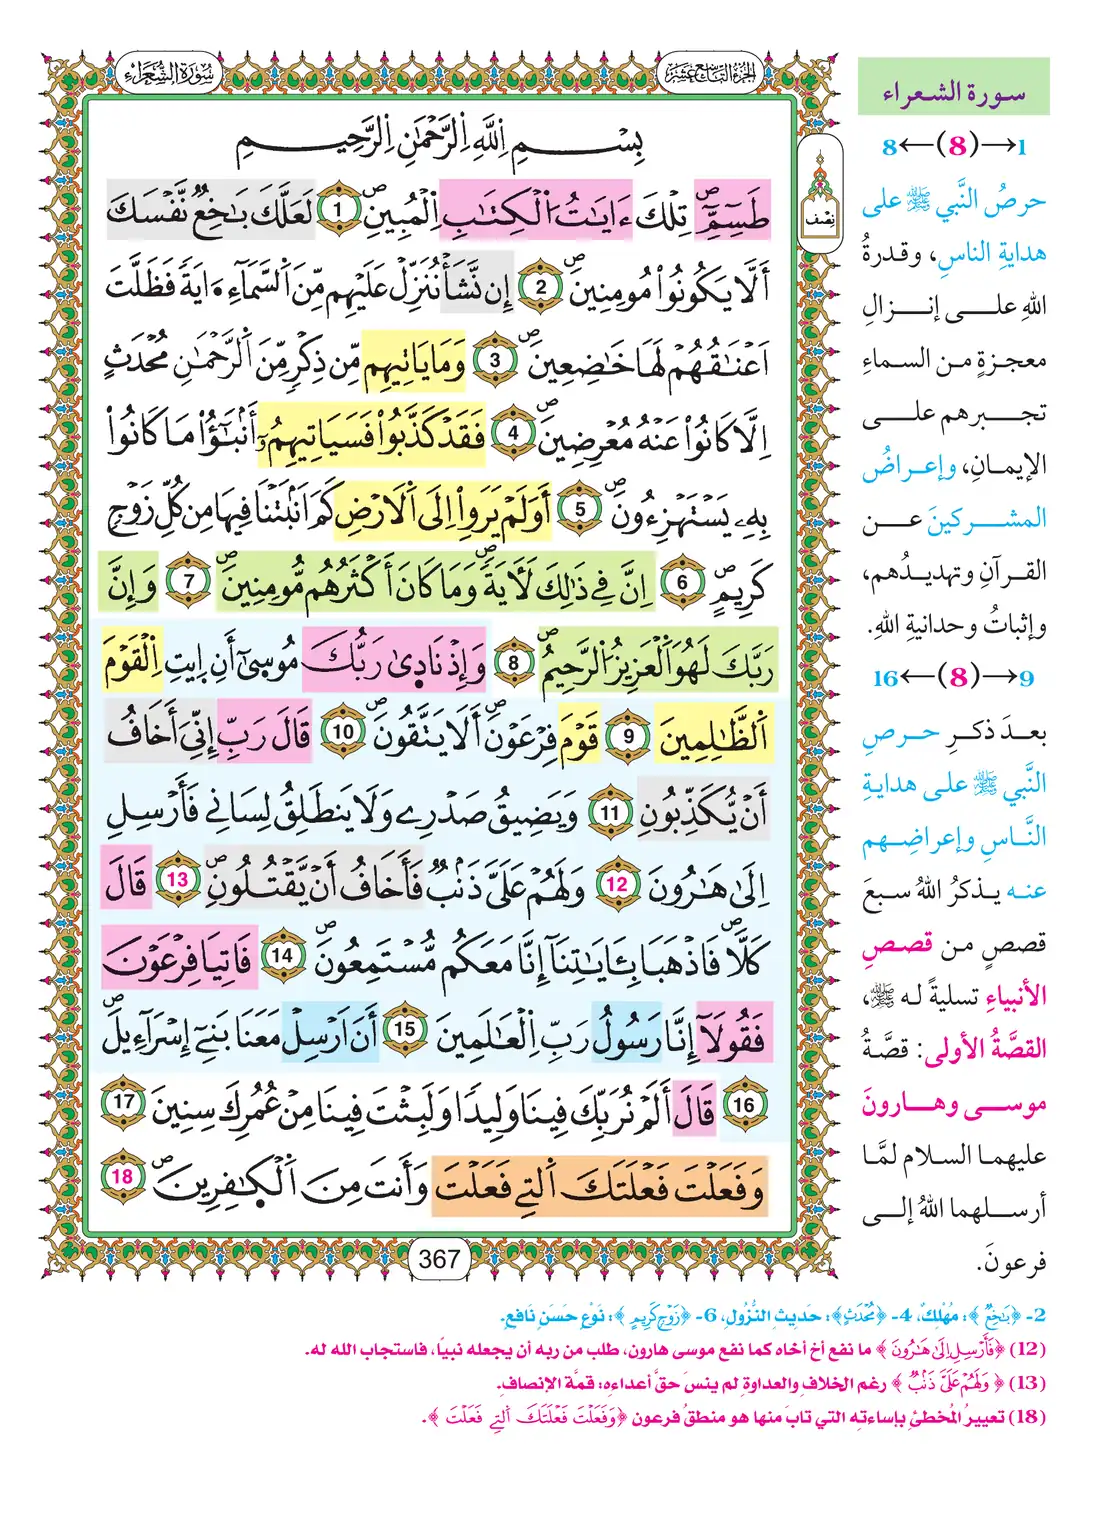 الجُزْءُ التَّاسِعَ عَشَرَ
سُورَةُ الشُّعَرَاءِ
بِسْمِ اِ۬للَّهِ اِ۬لرَّحْمَٰنِ اِ۬لرَّحِيمِ
طَسِٓمِّٓۖ تِلْكَ ءَايَٰتُ اُ۬لْكِتَٰبِ اِ۬لْمُبِينِۖ 1 لَعَلَّكَ بَٰخِعٞ نَّفْسَكَ
أَلَّا يَكُونُواْ مُومِنِينَۖ 2 إِن نَّشَأْ نُنَزِّلْ عَلَيْهِم مِّنَ اَ۬لسَّمَآءِ ءَايَةٗ فَظَلَّتَ
اَعْنَٰقُهُمْ لَهَا خَٰضِعِينَۖ 3 وَمَا يَاتِيهِم مِّن ذِكْرٖ مِّنَ اَ۬لرَّحْمَٰنِ مُحْدَثٍ
اِلَّا كَانُواْ عَنْهُ مُعْرِضِينَۖ 4 فَقَدْ كَذَّبُواْ فَسَيَاتِيهِمُۥٓ أَنۢبَٰٓؤُاْ مَا كَانُواْ
بِهِۦ يَسْتَهْزِءُونَۖ 5 أَوَلَمْ يَرَوِاْ اِلَى اَ۬لَارْضِ كَمَ اَنۢبَتْنَا فِيهَا مِن كُلِّ زَوْجٖ
كَرِيمٍۖ 6 اِنَّ فِي ذَٰلِكَ لَأٓيَةٗۖ وَمَا كَانَ أَكْثَرُهُم مُّومِنِينَۖ 7 وَإِنَّ
رَبَّكَ لَهُوَ اَ۬لْعَزِيزُ اُ۬لرَّحِيمُۖ 8 وَإِذْ نَادَىٰ رَبُّكَ مُوسَىٰٓ أَنِ اِيتِ اِ۬لْقَوْمَ
اَ۬لظَّٰلِمِينَ 9 قَوْمَ فِرْعَوْنَۖ أَلَا يَتَّقُونَۖ 10 قَالَ رَبِّ إِنِّيَ أَخَافُ
أَنْ يُّكَذِّبُونِ 11 وَيَضِيقُ صَدْرِي وَلَا يَنطَلِقُ لِسَانِي فَأَرْسِلِ
اِلَىٰ هَٰرُونَ 12 وَلَهُمْ عَلَيَّ ذَنۢبٞ فَأَخَافُ أَنْ يَّقْتُلُونِۖ 13 قَالَ
كَلَّاۖ فَاذْهَبَا بِـَٔايَٰتِنَآ إِنَّا مَعَكُم مُّسْتَمِعُونَۖ 14 فَاتِيَا فِرْعَوْنَ
فَقُولَآ إِنَّا رَسُولُ رَبِّ اِ۬لْعَٰلَمِينَ 15 أَنَ اَرْسِلْ مَعَنَا بَنِيٓ إِسْرَآءِيلَۖ
16 قَالَ أَلَمْ نُرَبِّكَ فِينَا وَلِيدٗا وَلَبِثْتَ فِينَا مِنْ عُمُرِكَ سِنِينَ 17
وَفَعَلْتَ فَعْلَتَكَ اَ۬لتِي فَعَلْتَ وَأَنتَ مِنَ اَ۬لْكَٰفِرِينَۖ 18
367
نِصْف
سورة الشعراء
1→(8)←8
حرصُ النَّبي ﷺ على
هدايةِ الناسِ، وقدرةُ
اللهِ على إنزالِ
معجزةٍ من السماءِ
تجبرهم على
الإيمانِ، وإعراضُ
المشركينَ عن
القرآنِ وتهديدُهم،
وإثباتُ وحدانيةِ اللهِ.
9→(8)←16
بعدَ ذكرِ حرصِ
النَّبي ﷺ على هدايةِ
النَّاسِ وإعراضِهم
عنه يذكرُ اللهُ سبعَ
قصصٍ من قصصِ
الأنبياءِ تسليةً له ﷺ،
القصَّةُ الأولى: قصَّةُ
موسى وهارونَ
عليهما السلام لمَّا
أرسلهما اللهُ إلى
فرعونَ.
2- ﴿بَٰخِعٞ﴾: مُهْلِكٌ، 4- ﴿مُحْدَثٍ﴾: حَدِيثِ النُّزُولِ، 6- ﴿زَوْجٖ كَرِيمٍ﴾: نَوْعٍ حَسَنٍ نَافِعٍ.
(12) ﴿فَأَرْسِلِ اِلَىٰ هَٰرُونَ﴾ ما نفع أخ أخاه كما نفع موسى هارون، طلب من ربه أن يجعله نبياً، فاستجاب الله له.
(13) ﴿وَلَهُمْ عَلَيَّ ذَنۢبٞ﴾ رغم الخلاف والعداوة لم ينسَ حقَّ أعداءه؛ قمَّة الإنصاف.
(18) تعييرُ المُخطئِ بإساءته التي تابَ منها هو منطقُ فرعون ﴿وَفَعَلْتَ فَعْلَتَكَ اَ۬لتِي فَعَلْتَ﴾.